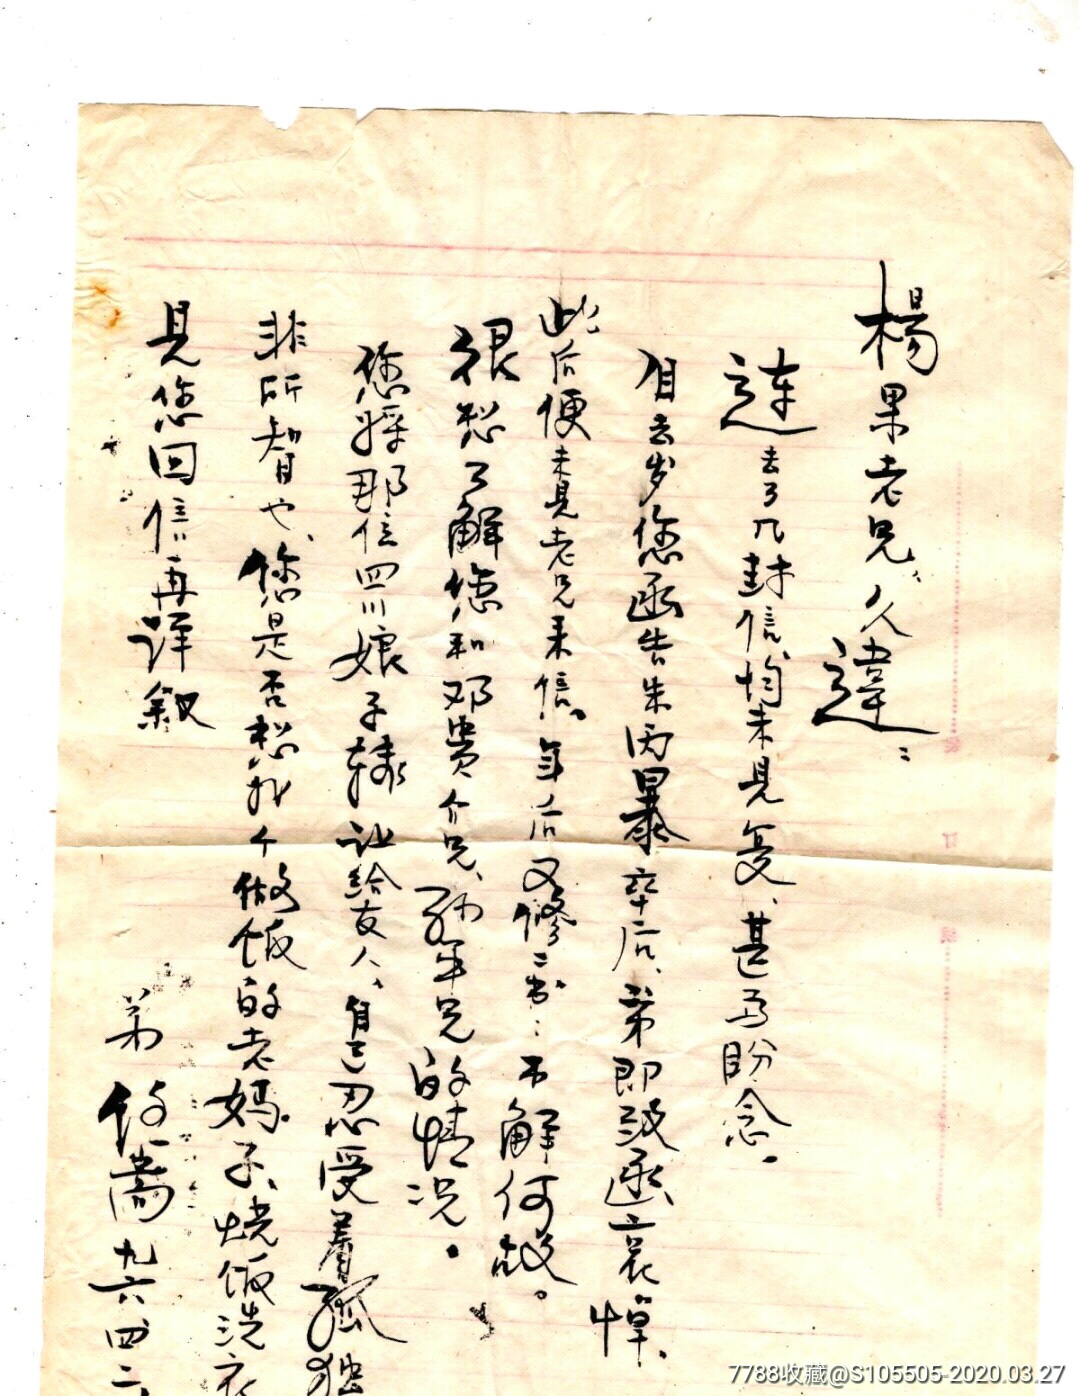 楊果老兄：久違：
連去了几封信，均未見复，甚為盼念。
自去岁您函告朱丙暴卒后，弟即致函哀悼，
此后便未見老兄来信。年后又修二书：不解何故。
很想了解您和邓贵介兄、年兄的情况。
您将那位四川娘子轉让給友人，自己忍受着孤独
非所智也、您是否想找个做饭的老妈子，烧饭洗衣
見您回信再詳叙
弟 九六、四、二、
7788收藏@S105505-2020.03.27